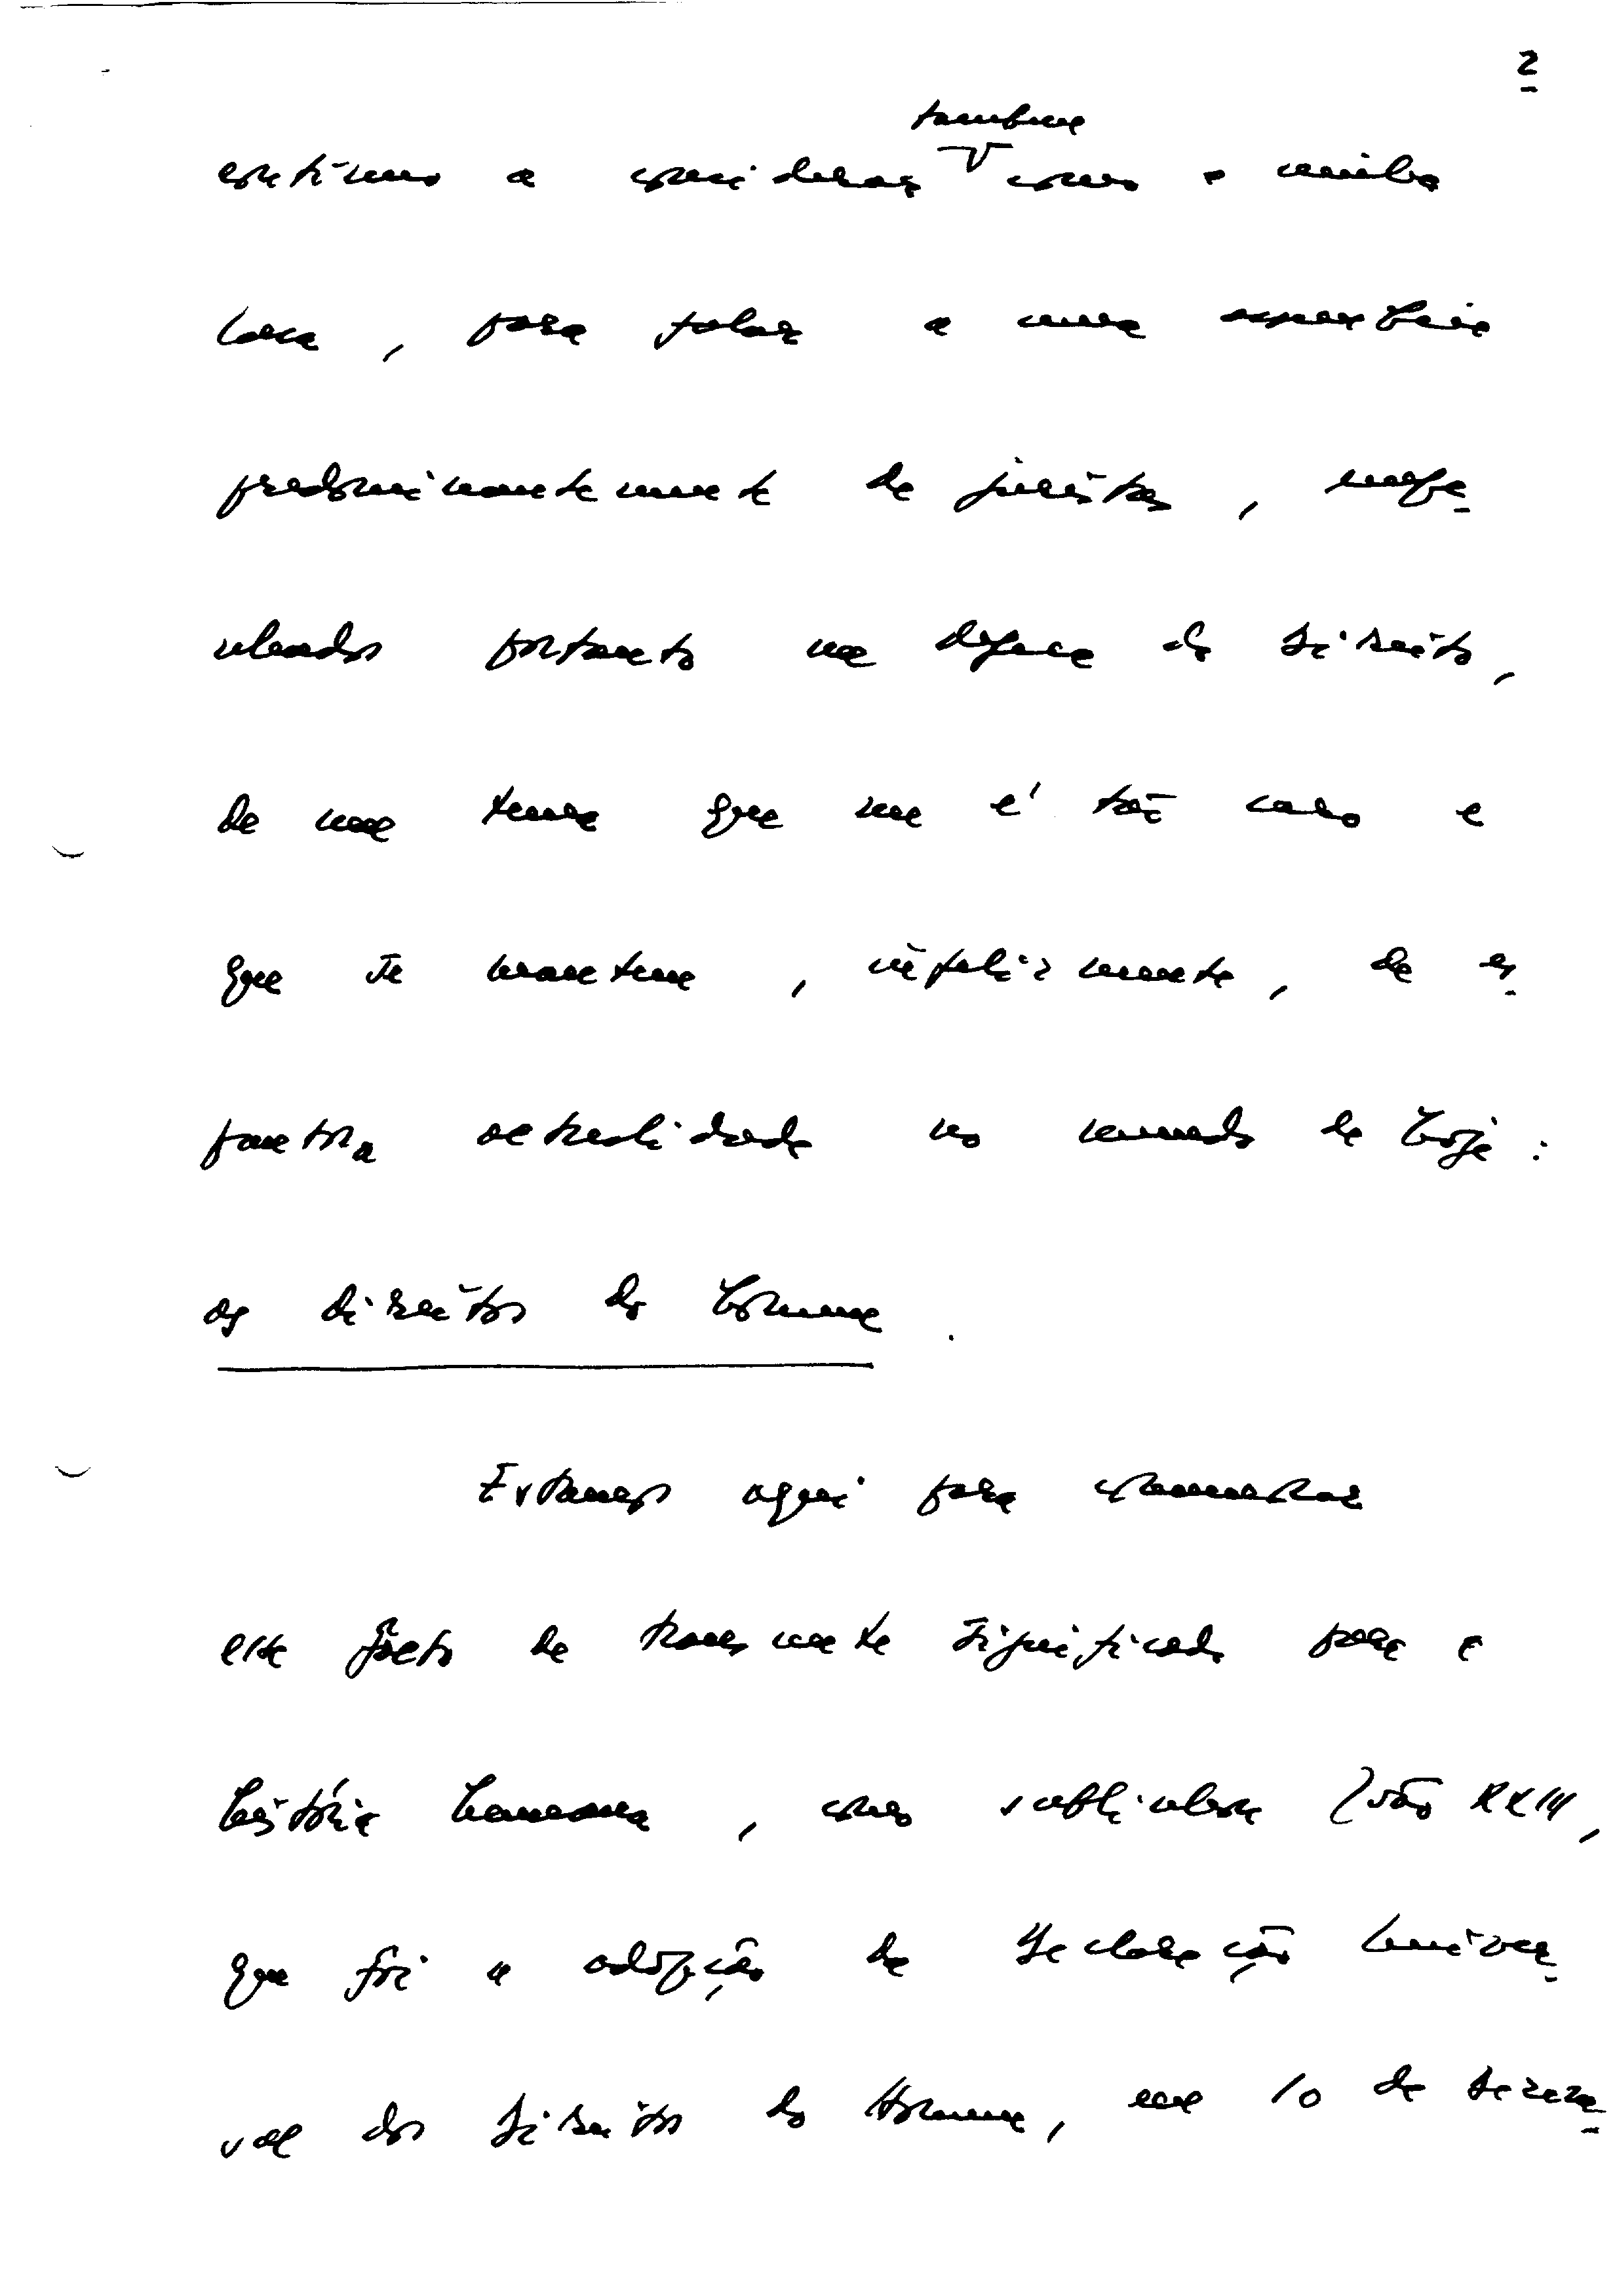 2
também
continuo a considerar como a minha
casa, para falar a uma assembleia
predominantemente de juristas, empe-
nhados portanto na defesa do Direito,
de um tema que me é tão caro e
que se mantem, infelizmente, de es-
pantosa actualidade no mundo de hoje:
os direitos do homem.
Estamos aqui para comemorar
este facto de transcendente significado para a
história humana, como sublinhou João XXIII,
que foi a adopção da Declaração Univer-
sal dos Direitos do Homem, em 10 de Dezem-